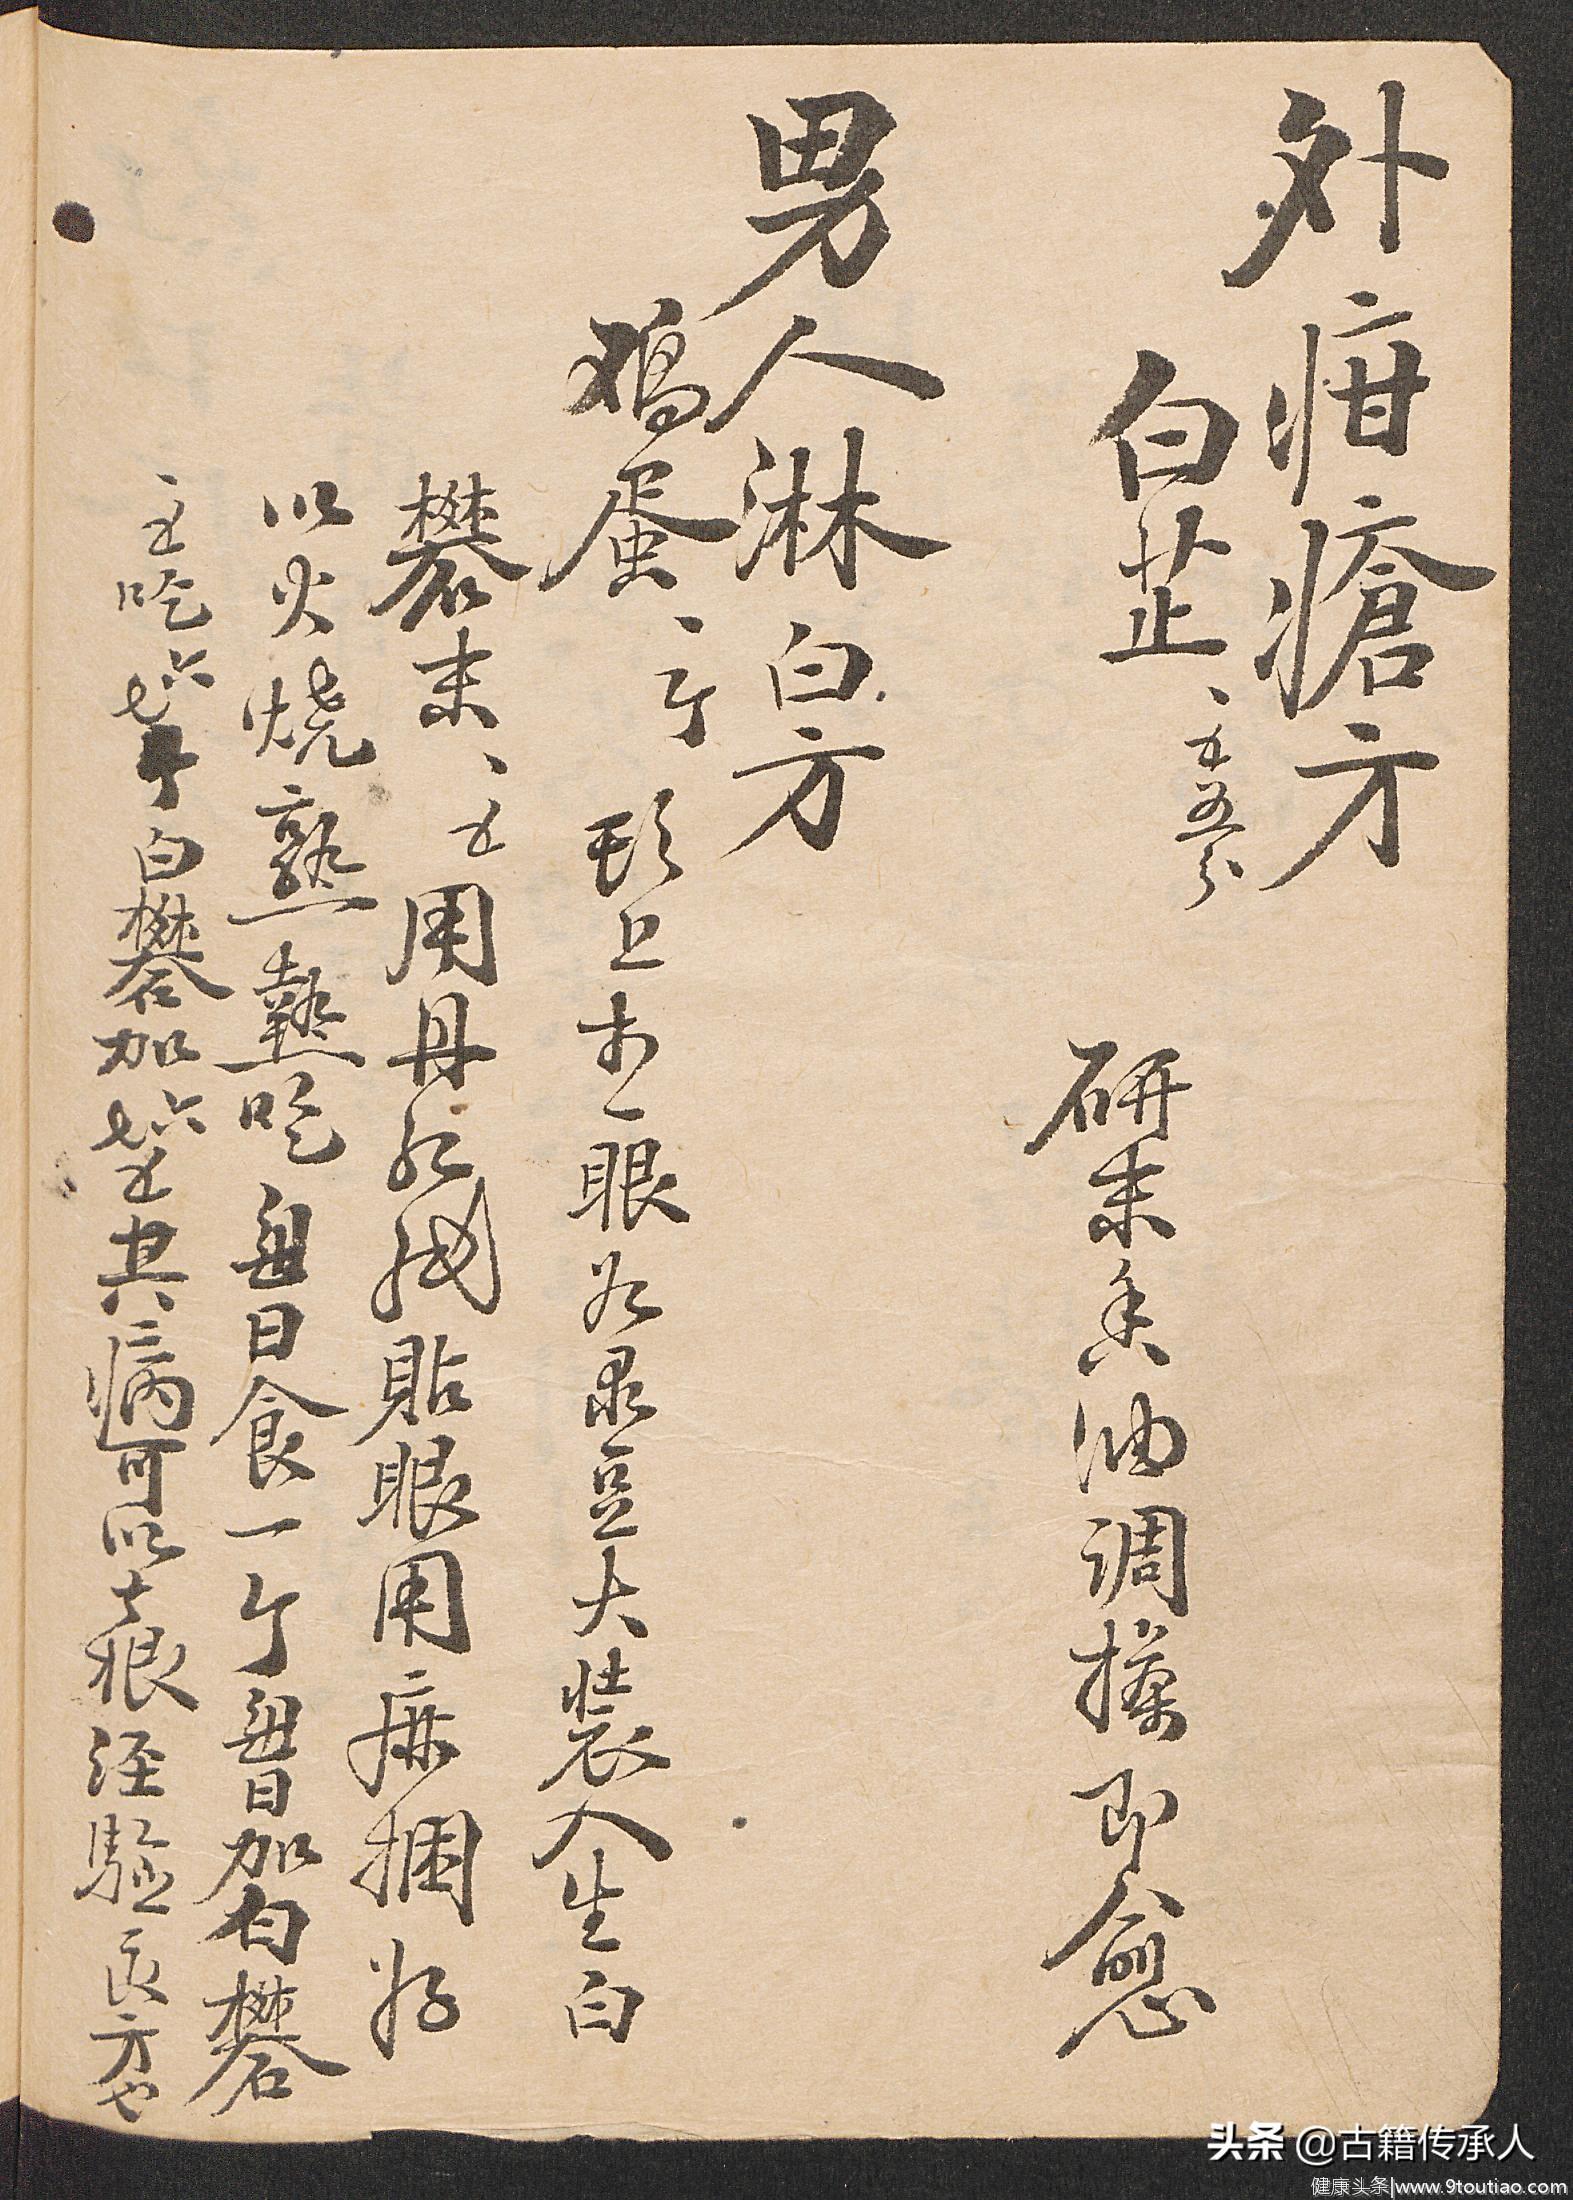 外疳瘡方
白芷
研末香油調搽即愈
男人淋白方
鸡蛋、一个 頭上打一眼如菉豆大裝入生白
礬末、 用丹紅紙貼眼用麻捆好
以火烧熟熱吃每日食一个每日加白礬
吃六七个白礬加六七 其病可以去根经驗良方也
头条 @古籍传承人
健康头条|www.9toutiao.com